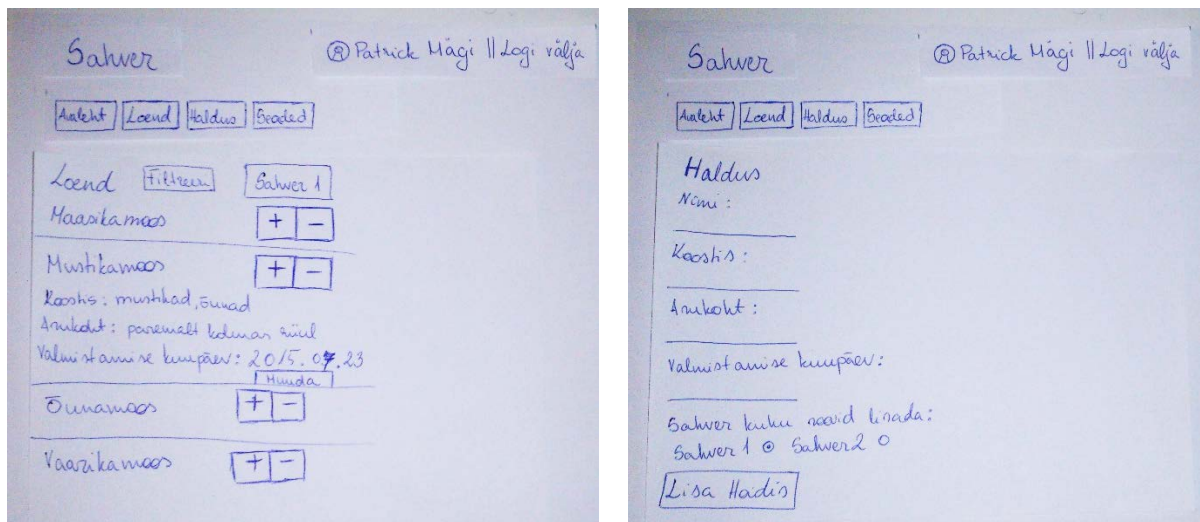 Sahver
Ⓡ Patrick Mägi || Logi välja
Avaleht Loend Haldus Seaded
Loend Filtreeri Sahver 1
Maasikamoos + -
Mustikamoos + -
Koostis: mustikad, õunad
Asukoht: paremalt kolmas riiul
Valmistamise kuupäev: 2015.07.23
Muuda
Õunamoos + -
Vaarikamoos + -
Sahver
Ⓡ Patrick Mägi || Logi välja
Avaleht Loend Haldus Seaded
Haldus
Nimi:
Koostis:
Asukoht:
Valmistamise kuupäev:
Sahver kuhu soovid lisada:
Sahver 1 ⊙ Sahver 2 ○
Lisa Hoidis